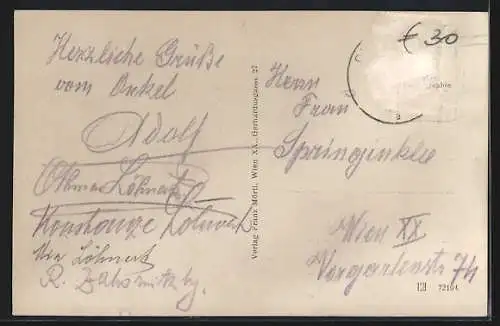 Herzliche Grüße
vom Onkel
Adolf
Othmar Löhnert
Konstanze Löhnert
Löhnert
R.
Verlag Franz Mörtl, Wien XX., Gerhardusgasse 27
€ 30
Herrn
Frau
Springinklee
Wien XX
Vorgartenstr 74
72164